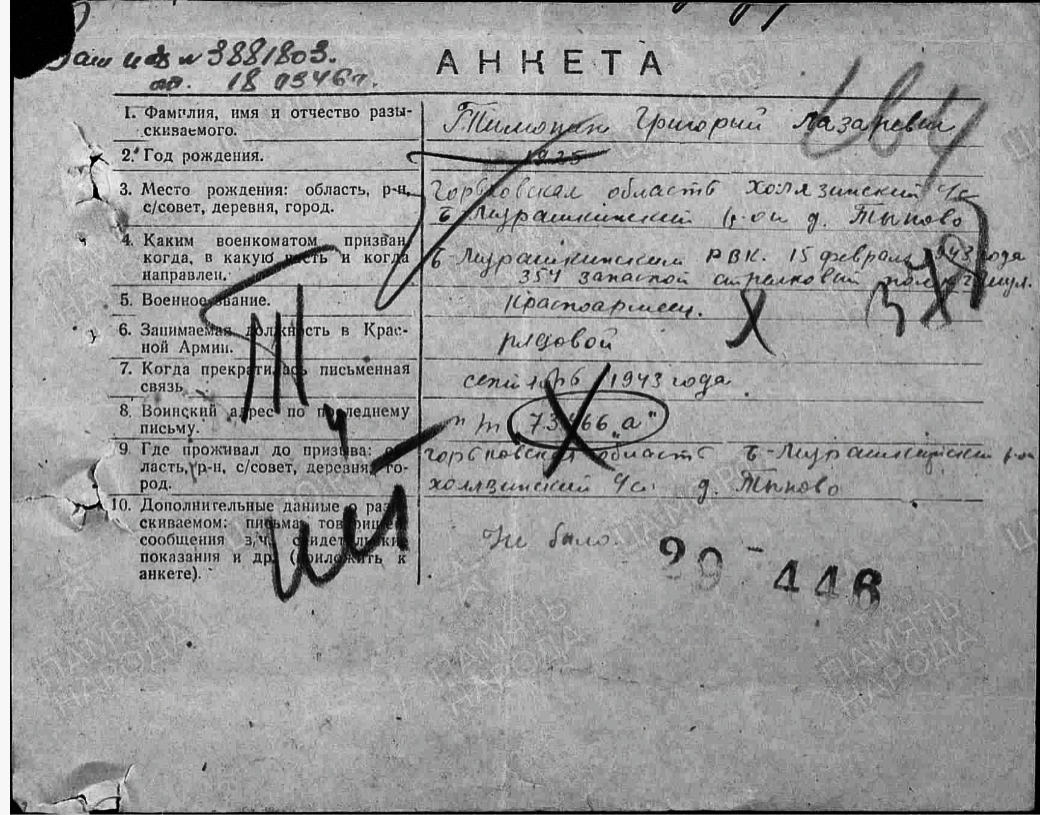 Ваш исх № 3881803.
от. 18 03 46 г.
АНКЕТА
1. Фамилия, имя и отчество разы-
скиваемого.
Григорий Лазаревич
2. Год рождения.
1925
3. Место рождения: область, р-н,
с/совет, деревня, город.
Горьковская область Холязинский с/с
Б-Мурашкинский р-он д. Тыново
4. Каким военкоматом призван,
когда, в какую часть и когда
направлен.
Б-Мурашкинским РВК. 15 февраля 1943 года
354 запасной стрелковый
5. Военное звание.
Красноармеец.
6. Занимаемая должность в Крас-
ной Армии.
рядовой
7. Когда прекратилась письменная
связь
сентябрь 1943 года
8. Воинский адрес по последнему
письму.
п/п 66 "а"
9. Где проживал до призыва: об-
ласть, р-н, с/совет, деревня, го-
род.
Горьковская область Б-Мурашкинский р-он
Холязинский с/с. д. Тыново
10. Дополнительные данные о разы-
скиваемом: письма товарищей,
сообщения з/ч, свидетельские
показания и др. (приложить к
анкете).
Не было.
29-446
ПАМЯТЬ
НАРОДА